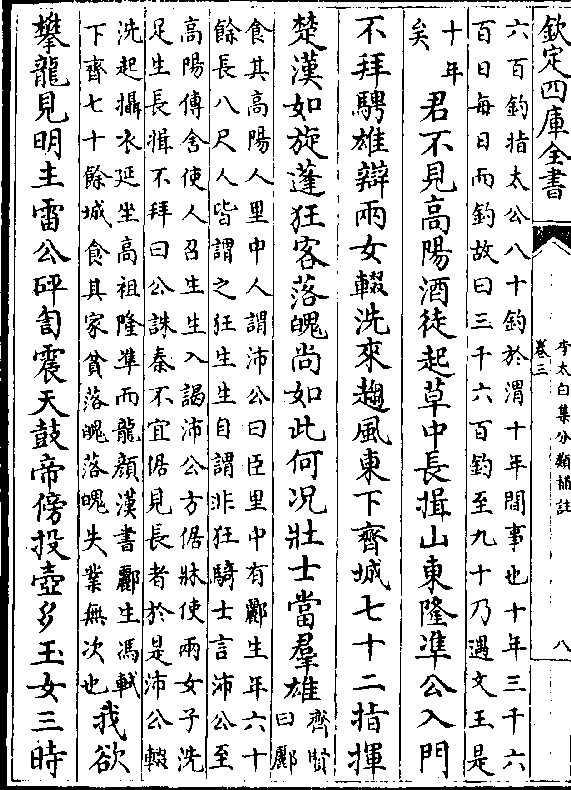 欽定四庫全書
李太白集分類補註
卷三
八
六百釣指太公八十釣於渭十年間事也十年三千六
百日每日而釣故曰三千六百釣至九十乃遇文王是
十年
矣
君不見高陽酒徒起草中長揖山東隆凖公入門
不拜騁雄辯兩女輟洗來趨風東下齊城七十二指揮
楚漢如旋蓬狂客落魄尚如此何況壯士當羣雄
齊賢
曰酈
食其高陽人里中人謂沛公曰臣里中有酈生年六十
餘長八尺人皆謂之狂生生自謂非狂騎士言沛公至
高陽傳舍使人召生生入謁沛公方倨牀使兩女子洗
足生長揖不拜曰公誅秦不宜倨見長者於是沛公輟
洗起攝衣延坐高祖隆凖而龍顏漢書酈生馮軾
下齊七十餘城食其家貧落魄落魄失業無次也
我欲
攀龍見明主雷公砰訇震天鼓帝傍投壺多玉女三時